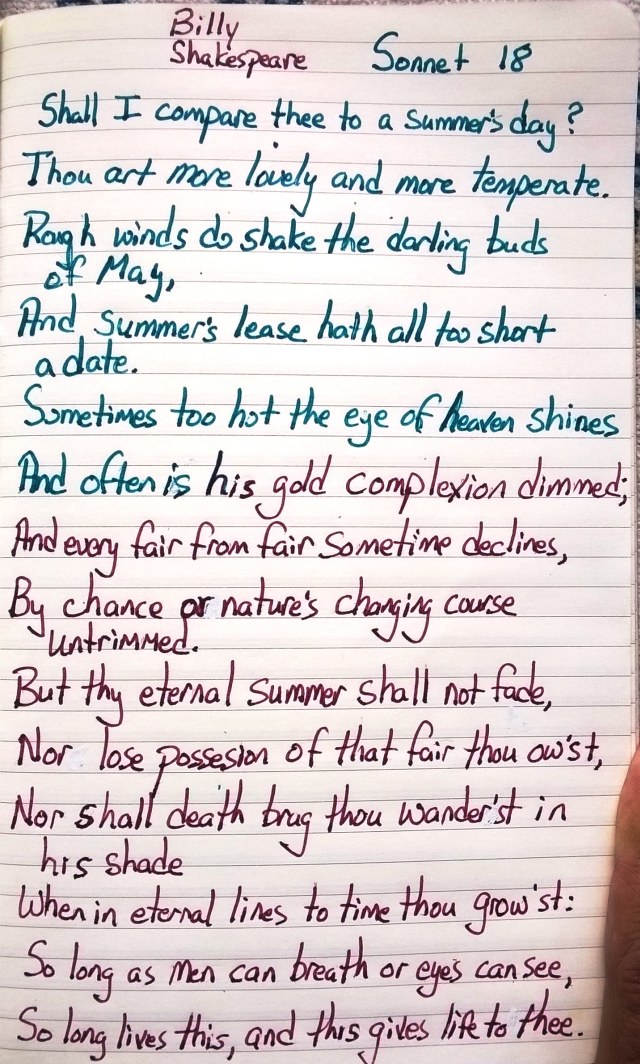 Billy
Shakespeare Sonnet 18
Shall I compare thee to a summer's day?
Thou art more lovely and more temperate.
Rough winds do shake the darling buds
of May,
And summer's lease hath all too short
a date.
Sometimes too hot the eye of heaven shines
And often is his gold complexion dimmed;
And every fair from fair sometime declines,
By chance or nature's changing course
untrimmed.
But thy eternal summer shall not fade,
Nor lose possesion of that fair thou ow'st,
Nor shall death brag thou wander'st in
his shade
When in eternal lines to time thou grow'st:
So long as men can breath or eyes can see,
So long lives this, and this gives life to thee.